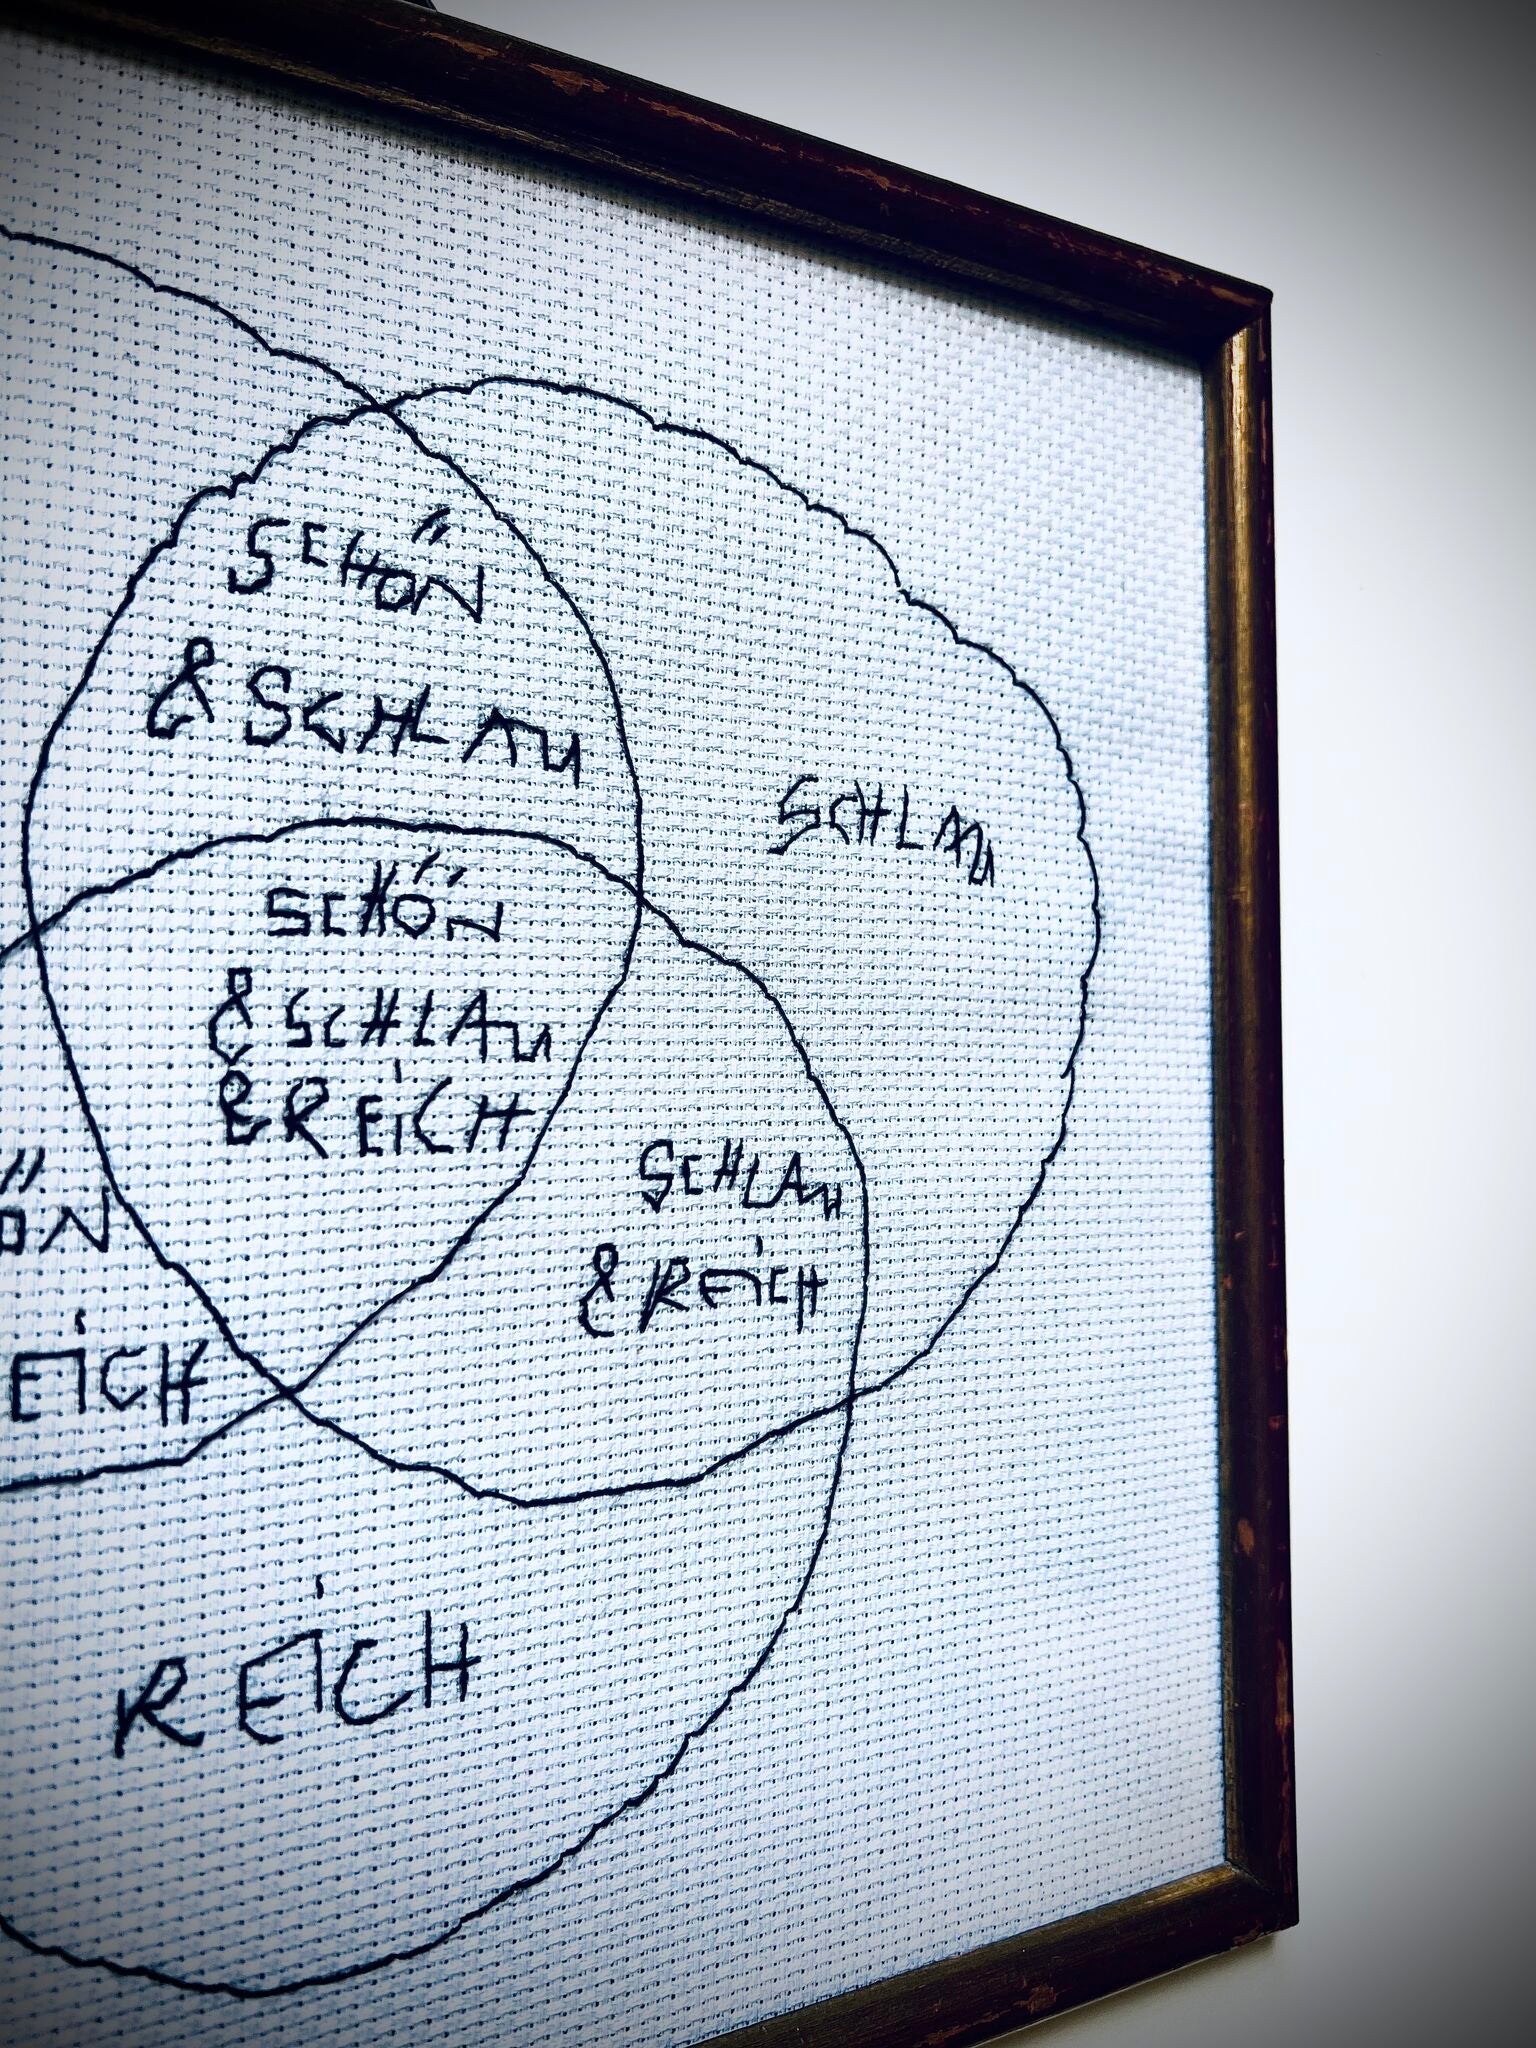 SCHÖN
& SCHLAU
SCHLAU
SCHÖN
& SCHLAU
& REICH
SCHLAU
& REICH
ÖN
EICH
REICH